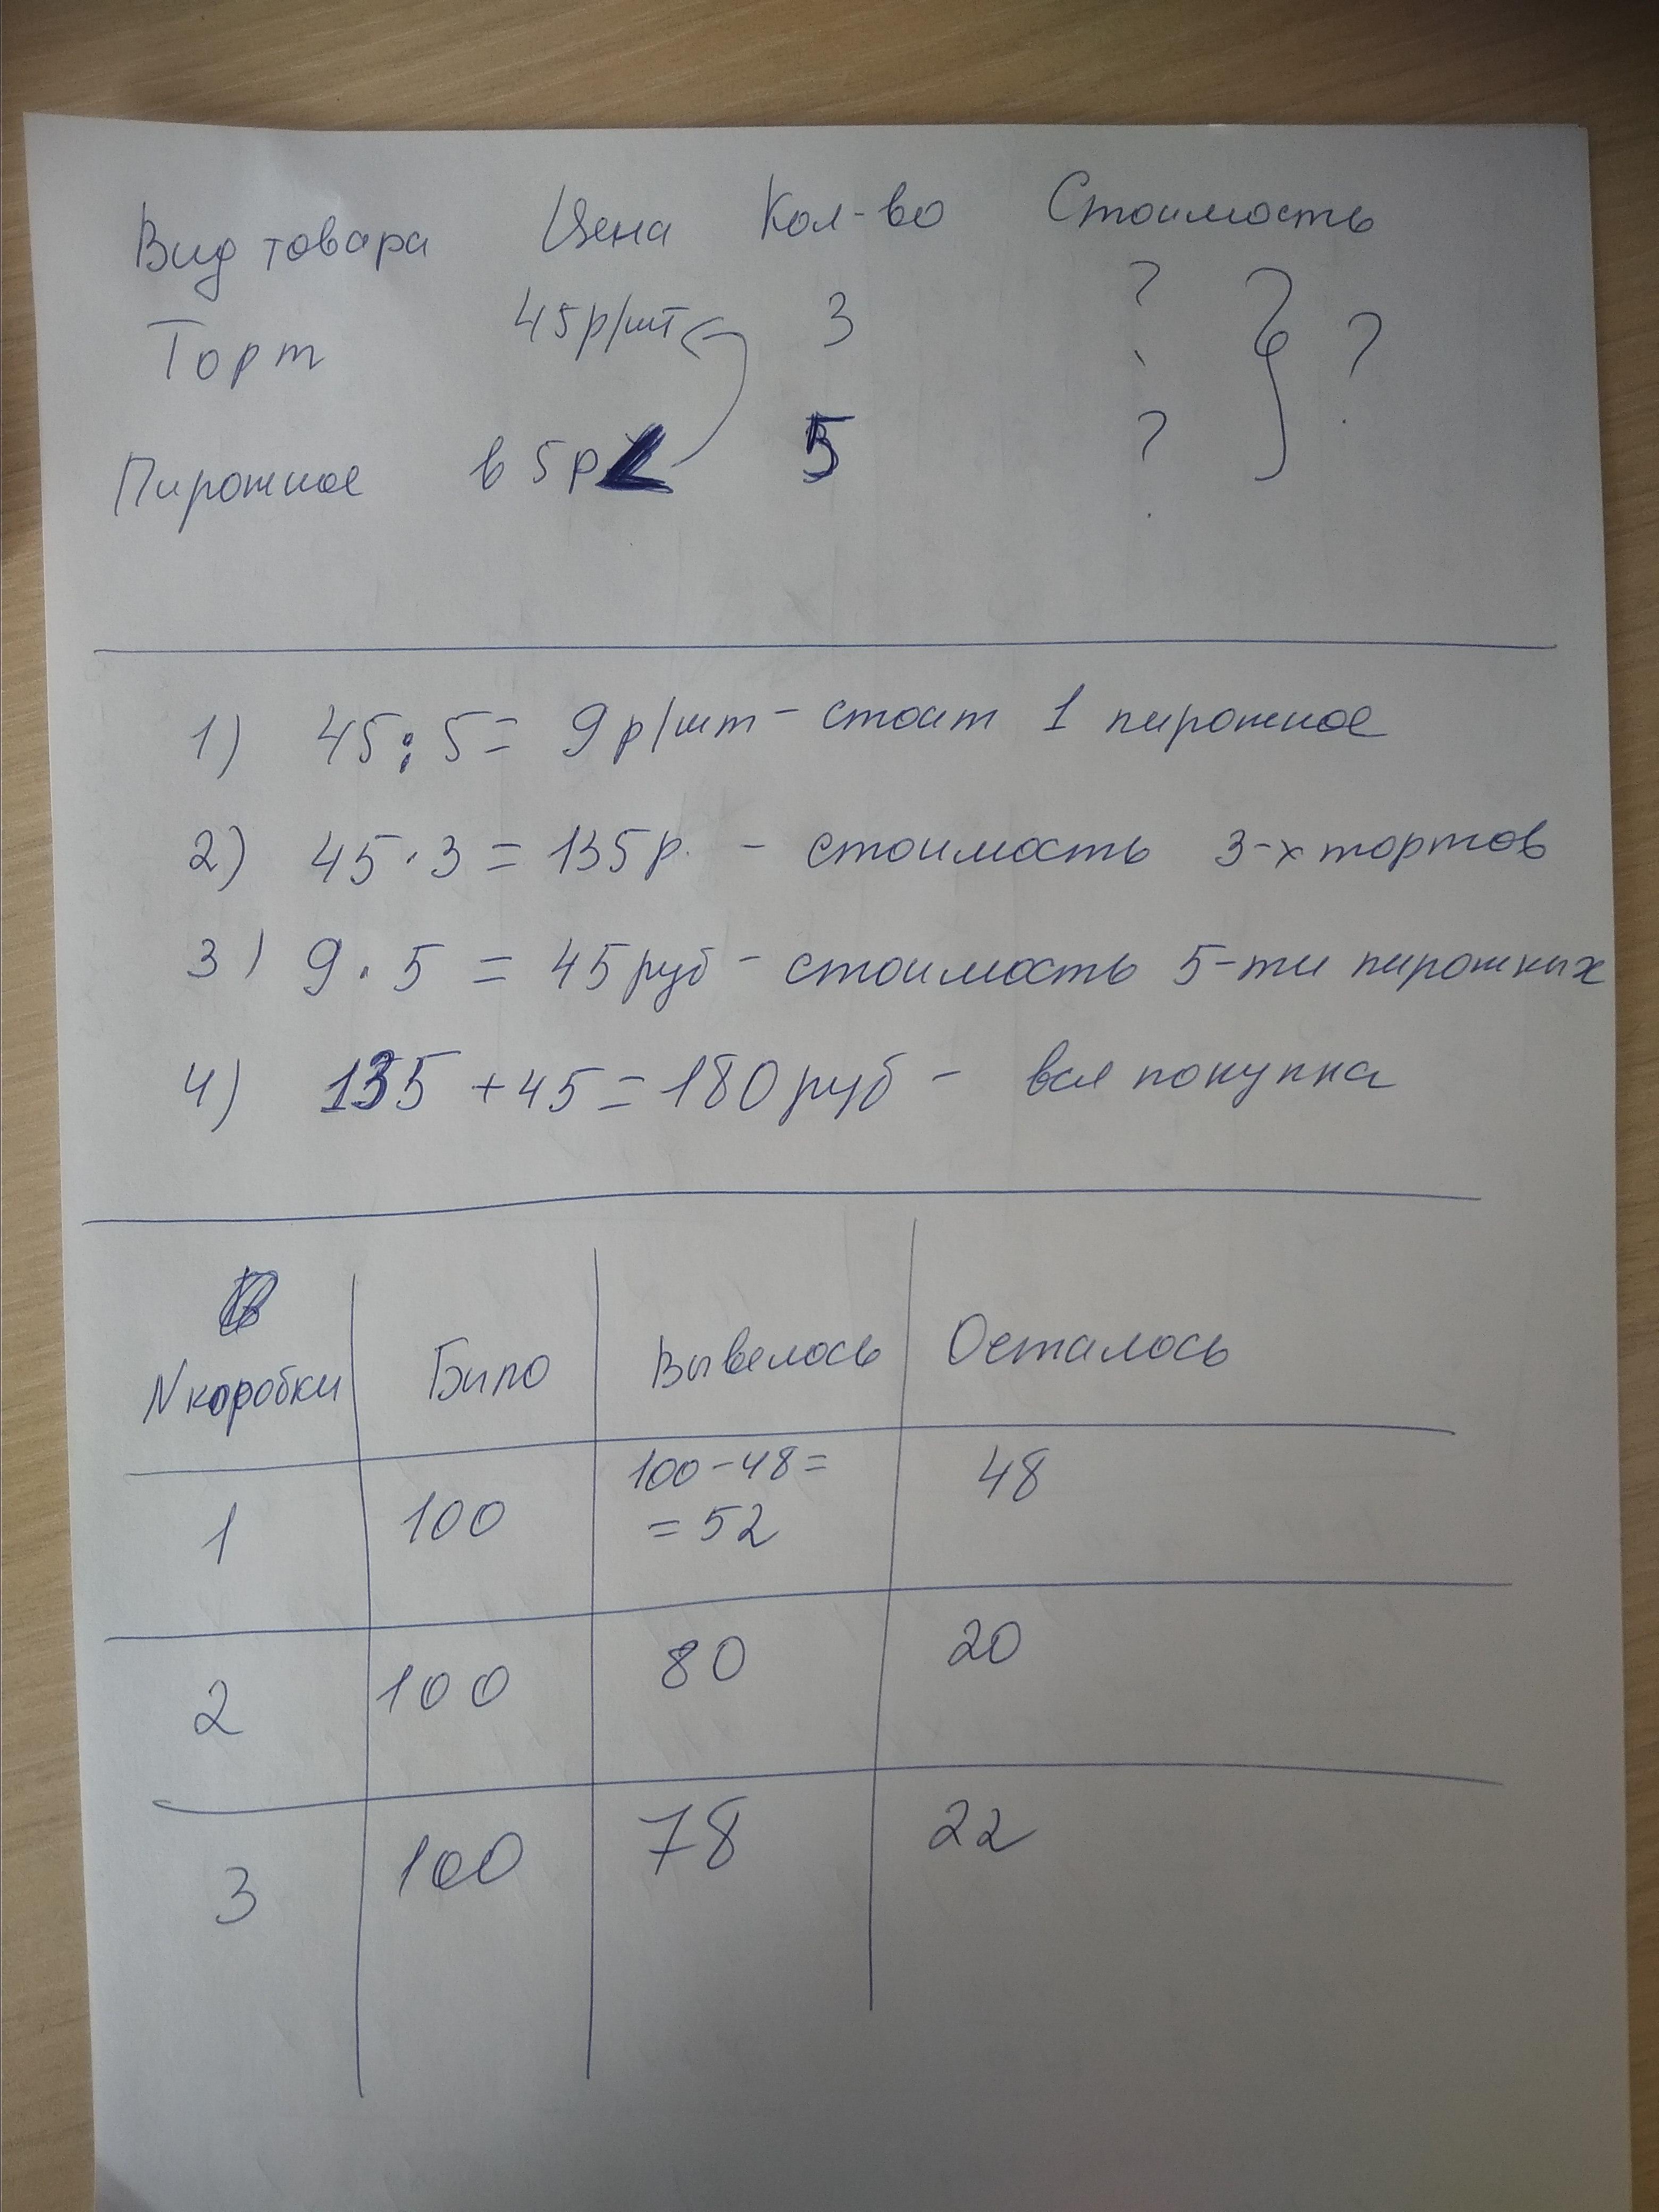 Вид товара Цена Кол-во Стоимость
Торт 45р/шт 3 ? } ?
Пирожное в 5р < 5 ?
1) 45:5= 9р/шт - стоит 1 пирожное
2) 45·3=135р. - стоимость 3-х тортов
3) 9·5 = 45руб - стоимость 5-ти пирожных
4) 135+45=180руб - вся покупка
N коробки Было Вывелось Осталось
1 100 100-48= 48
=52
2 100 80 20
3 100 78 22